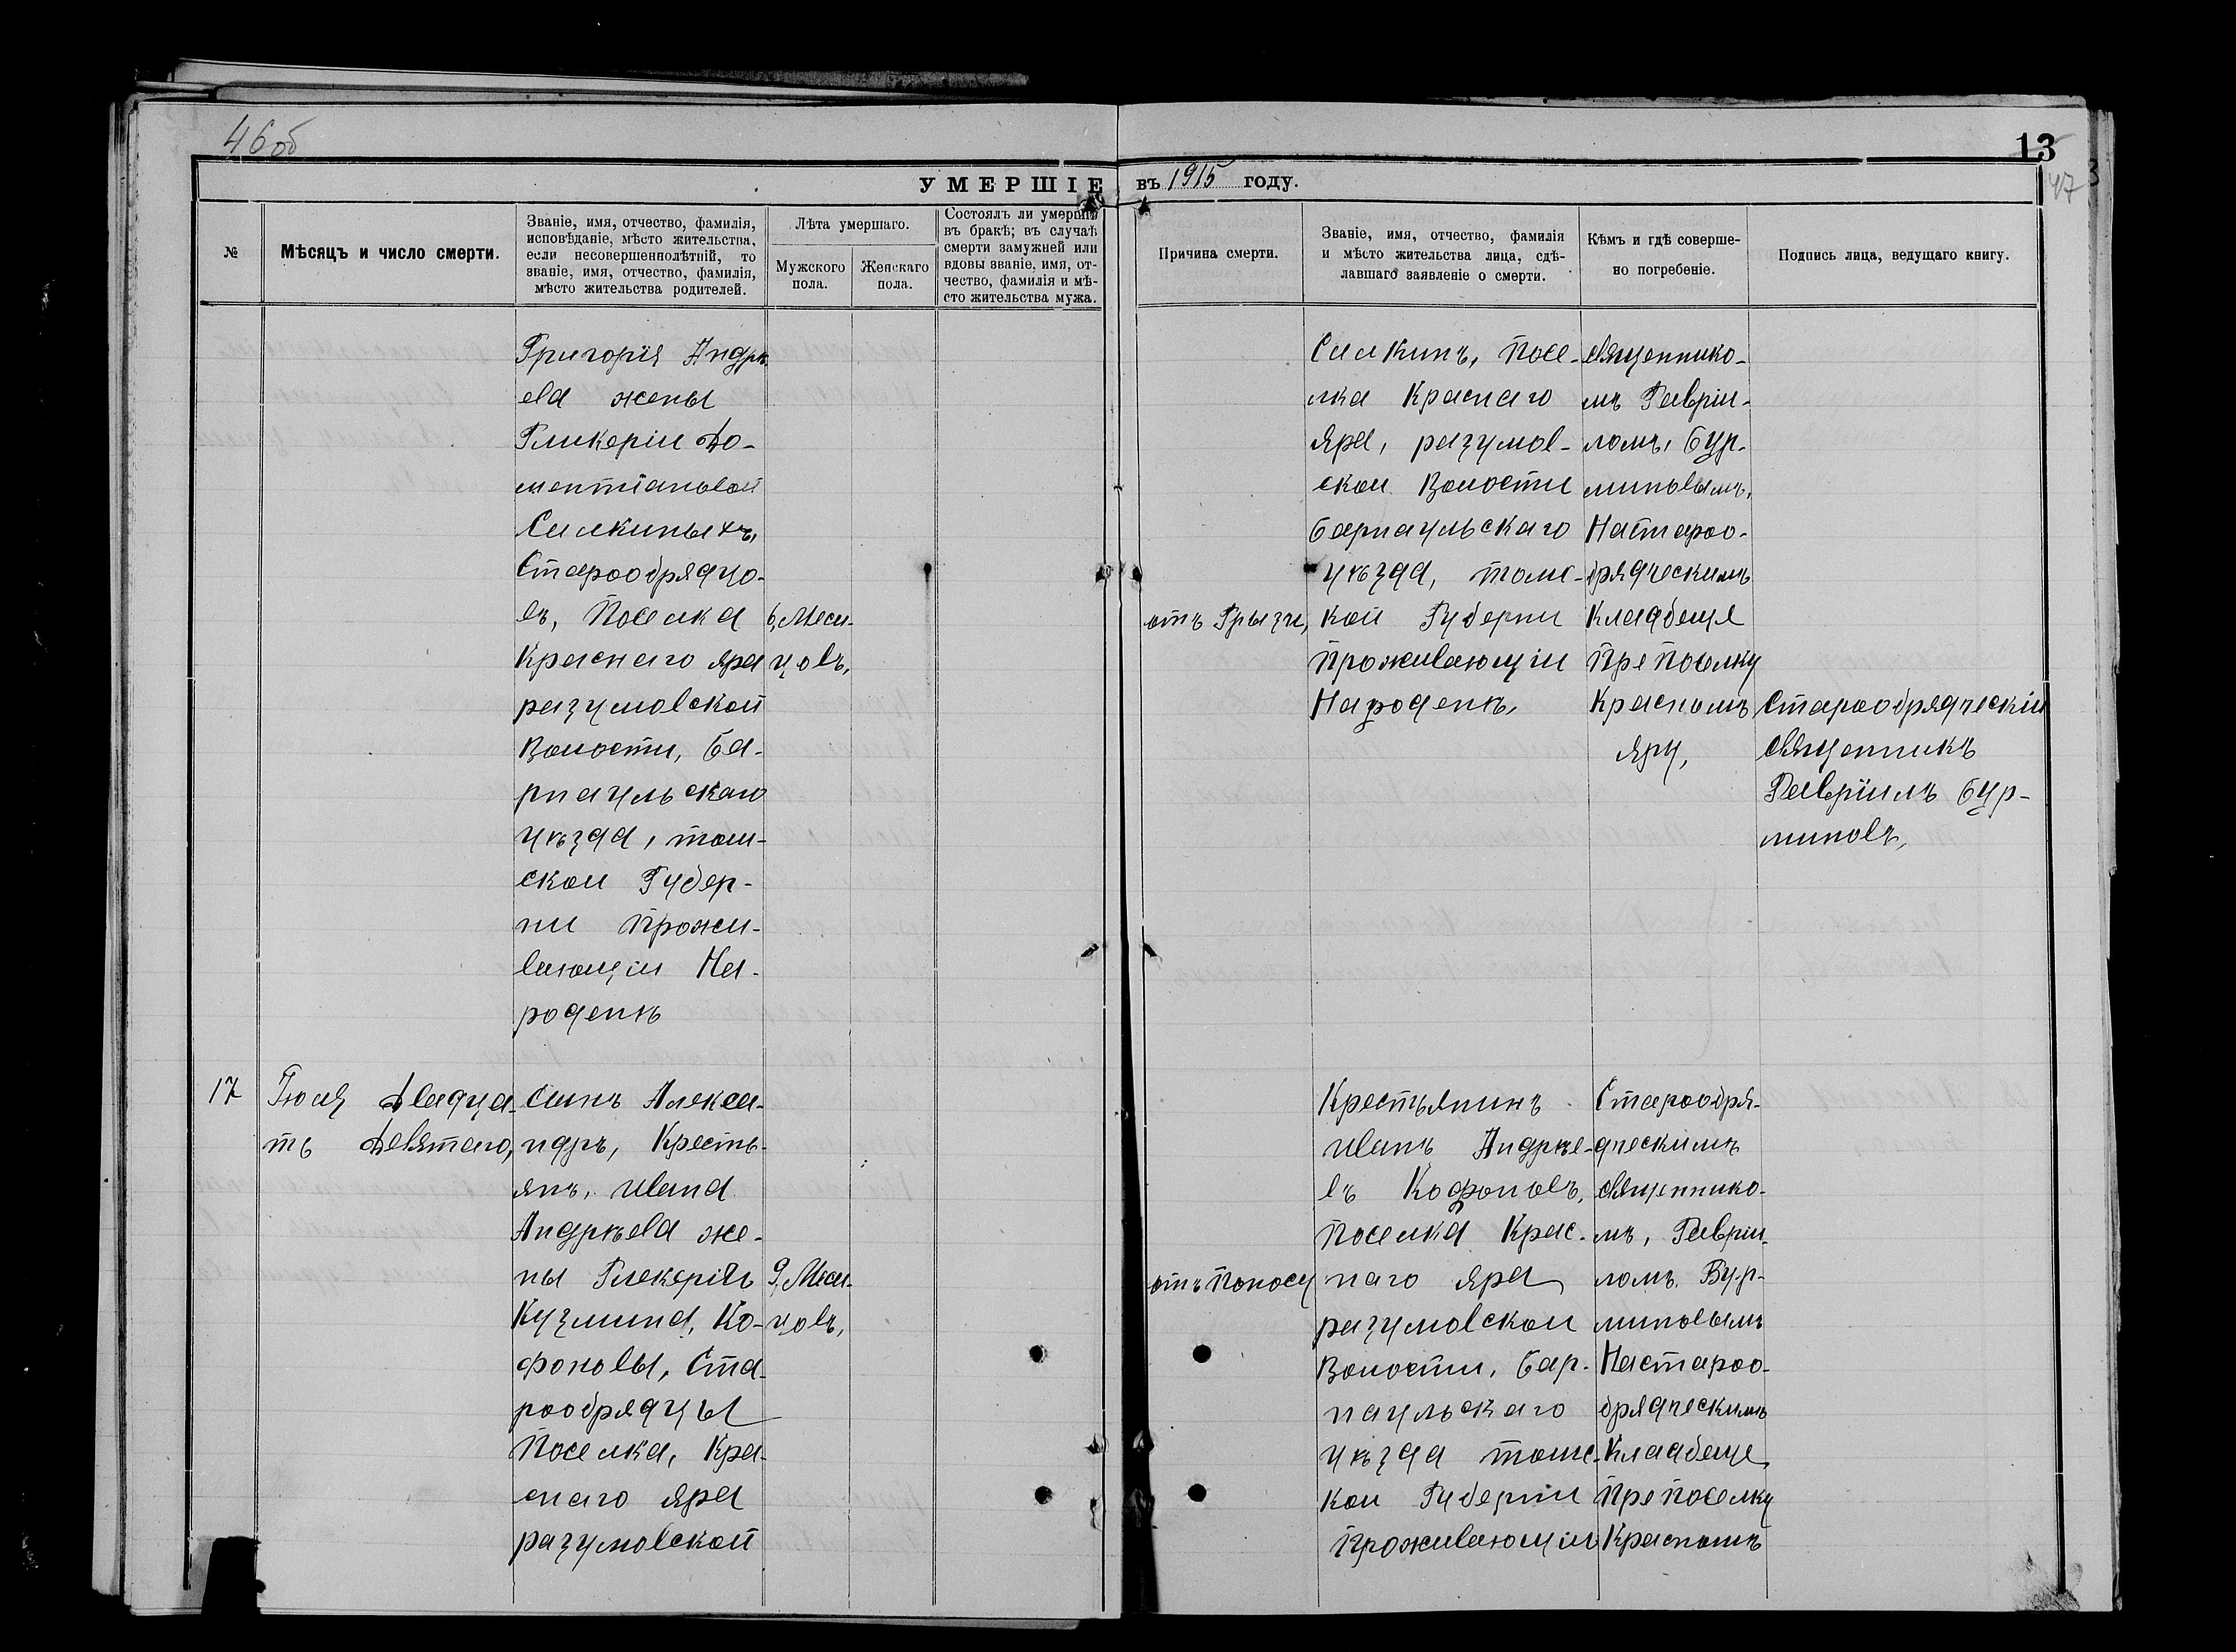 46об
13
47
УМЕРШІЕ въ 1915 году.
№
Мѣсяцъ и число смерти.
Званіе, имя, отчество, фамилія,
исповѣданіе, мѣсто жительства,
если несовершеннолѣтній, то
званіе, имя, отчество, фамилія,
мѣсто жительства родителей.
Лѣта умершаго.
Мужского
пола.
Женскаго
пола.
Состоялъ ли умершій
въ бракѣ; въ случаѣ
смерти замужней или
вдовы званіе, имя, от-
чество, фамилія и мѣ-
сто жительства мужа.
Причина смерти.
Званіе, имя, отчество, фамилія
и мѣсто жительства лица, сдѣ-
лавшаго заявленіе о смерти.
Кѣмъ и гдѣ соверше-
но погребеніе.
Подпись лица, ведущаго книгу.
Григорія Андрѣ
ева жены
Гликеріи До-
ментіановой
Силкиныхъ,
Старообрядцо-
въ, Поселка
Краснаго яра
разумовской
Волости, Ба-
рнаульскаго
уѣзда, том-
ской Губер-
ни Прожи-
вающіи На-
роденѣ
6, Меси-
цовъ,
отъ Грызи,
Силкинъ, Посе-
лка Краснаго
Яра, разумов-
ской Волости
Барнаульскаго
уѣзда, томс-
кой Губерни
Проживающіи
Народенѣ,
священнико-
мъ Гавріи-
ломъ, Бур-
миновымъ,
Настароо-
брядческимъ
Кладбеще
Препоселку
Красномъ
яру,
Старообрядческіи
священникъ
Гавріилъ Бур-
миновъ,
17
Іюля Двадца-
ть Девятаго,
Сынъ Алекса-
ндръ, Кресть-
янъ, ивана
Андрѣева же-
ны Глекеріи
Кузмина, Ко-
фоновы, Ста-
рообрядцы
Поселка, Кра-
снаго яра
разумовской
9, Меси-
цовъ,
отъ Поносу
Крестьянинъ
иванъ Андрѣе-
въ Кофоновъ,
Поселка Крас-
наго яра
разумовской
Волости, Бар-
наульскаго
уѣзда томс-
кои Губерніи
Проживающіи
Старообря-
дческимъ
священнико-
мъ, Гавріи-
ломъ Бур-
миновымъ
Настароо-
брядческимъ
Кладбеще
Препоселку
Красномъ